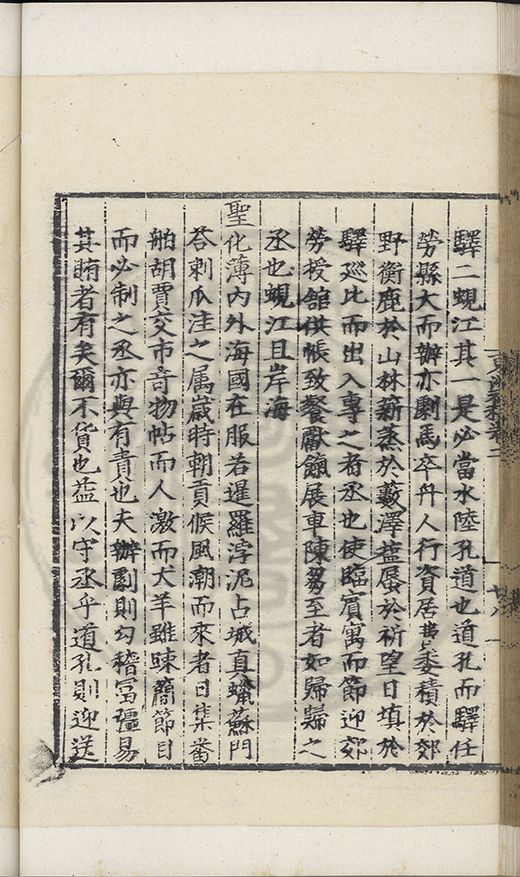 驛二蜆江其一是必當水陸孔道也道孔而驛任
勞縣大而辦亦劇馬卒舟人行資居費委積於郊
野衡鹿於山林薪蒸於藪澤鹽蜃於祈望日填於
驛廵比而出入專之者丞也使臨賓寓而節迎郊
勞授館供帳致餐獻餼展車陳芻至者如歸歸之
丞也蜆江且岸海
聖化薄內外海國在服若暹羅浮泥占城真蠟蘇門
荅剌瓜洼之属嵗時朝貢候風潮而來者日集畨
舶胡賈交市奇物帖而人激而犬羊雖踈簡節目
而必制之丞亦與有責也夫辦劇則勾稽冨疆易
其賄者有矣爾不貨也葢以守丞乎道孔則迎送